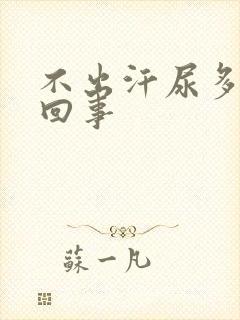 不出汗尿多
回事
蘇一凡